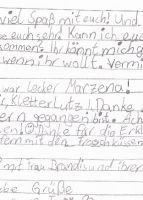 viel Spaß mit euch! Und
euch sehr. Kann ich euch
kommen. Ihr könnt mich g
wenn ihr wollt. Vermi
war lecker Marzena!
Kletter Lutz! Danke
gern gegangen bist.
Danke für die Erklä
tern mit den Froschküssen
mit Frau Brandis und ihren
Grüße